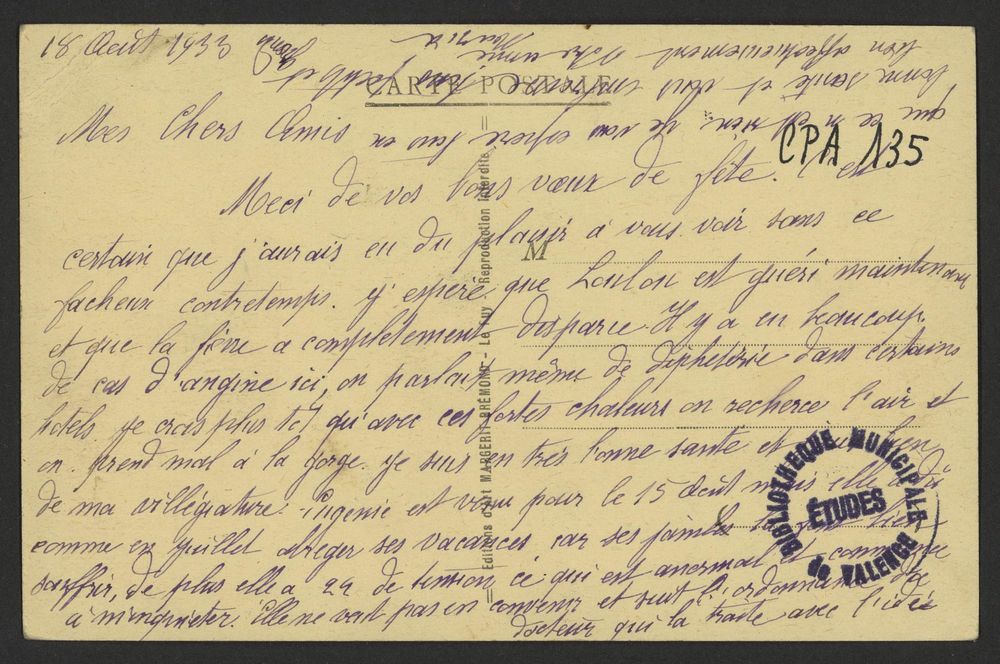 18 Août 1933
CARTE POSTALE
CPA 135
Mes Chers Amis
Merci de vos bons vœux de fête. Il est
certain que j'aurais eu du plaisir à vous voir sans ce
M
facheux contretemps. J'espère que Loulou est guéri maintenant
et que la fièvre a complètement disparue. Il y a eu beaucoup
de cas d'angine ici, on parlait même de diphtérie dans certains
hotels. Je crois plus tôt qu'avec ces fortes chaleurs on recherce l'air et
on prend mal à la gorge. Je suis en très bonne santé et
de ma villégiature. Eugénie est venu pour le 15 Août mais elle a dû
comme en juillet abréger ses vacances, car ses jambes la font
souffrir, de plus elle a 22 de tension ce qui est anormal et commence
à m'inquiéter. Elle ne veut pas en convenir et suit l'ordonnance du
docteur qui la traite avec l'idée
que ce n'est rien. Je vous espère tous en
bonne santé et vous
bien affectueusement Votre amie
Editions d'Art MARGERIT-BRÉMOND - Le Puy - Reproduction Interdite
BIBLIOTHEQUE MUNICIPALE
ÉTUDES
de VALENCE